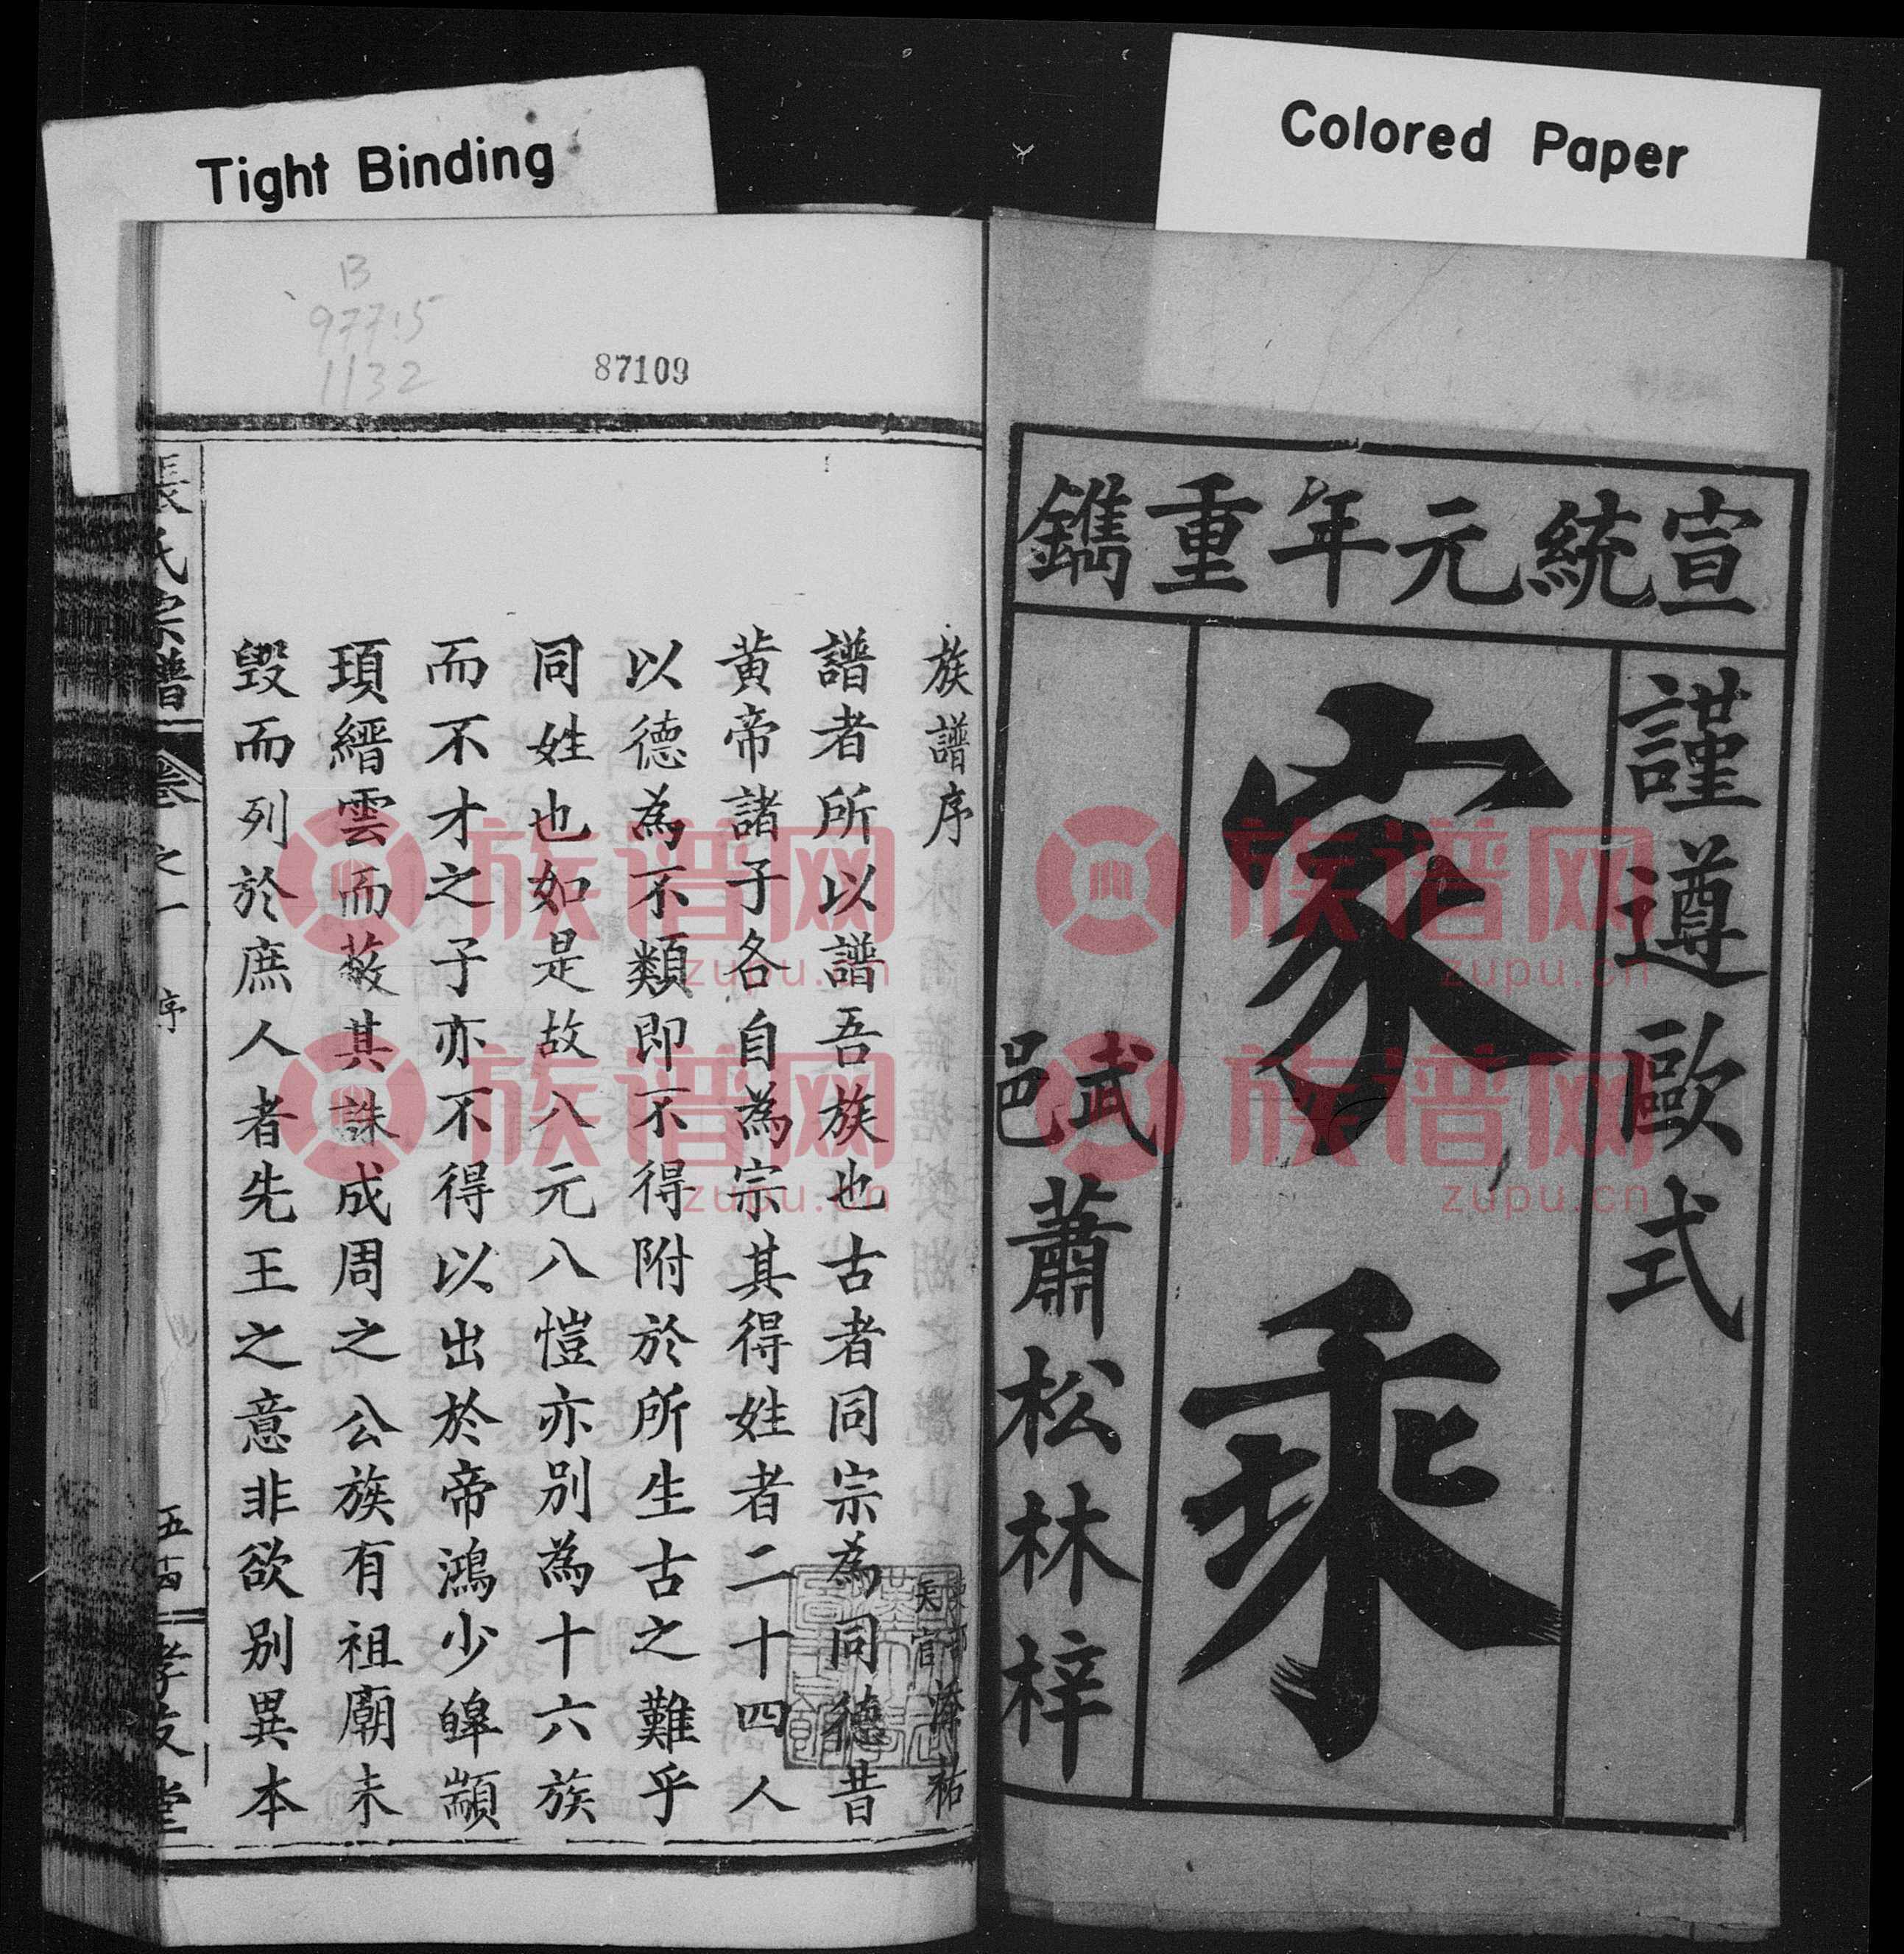 Tight Binding
Colored Paper
B
977.5
1132
87109
宣統元年重鐫
謹遵歐式
家乘
武邑
蕭松林梓
族譜序
天官
祐
譜者所以譜吾族也古者同宗為同德昔
黃帝諸子各自為宗其得姓者二十四人
以德為不類即不得附於所生古之難乎
同姓也如是故八元八愷亦別為十六族
而不才之子亦不得以出於帝鴻少皥顓
頊縉雲而蔽其誅成周之公族有祖廟未
毀而列於庶人者先王之意非欲別異本
張氏宗譜
卷之一
序
孝友堂
族谱网
zupu.cn
族谱网
zupu.cn
族谱网
zupu.cn
族谱网
zupu.cn